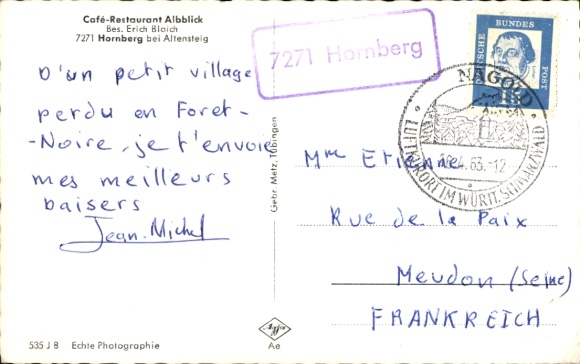 Café-Restaurant Albblick
Bes. Erich Bloich
7271 Hornberg bei Altensteig
D'un petit village
perdu en Foret-
-Noire, je t'envoie
mes meilleurs
baisers
Jean-Michel
535 J B Echte Photographie
Gebr. Metz, Tübingen
Agfa
Ae
7271 Hornberg
DEUTSCHE BUNDESPOST
15
NAGOLD
.4.63.-12
LUFTKURORT IM WÜRTT. SCHWARZWALD
Mme Etienne
Rue de la Paix
Meudon (Seine)
FRANKREICH